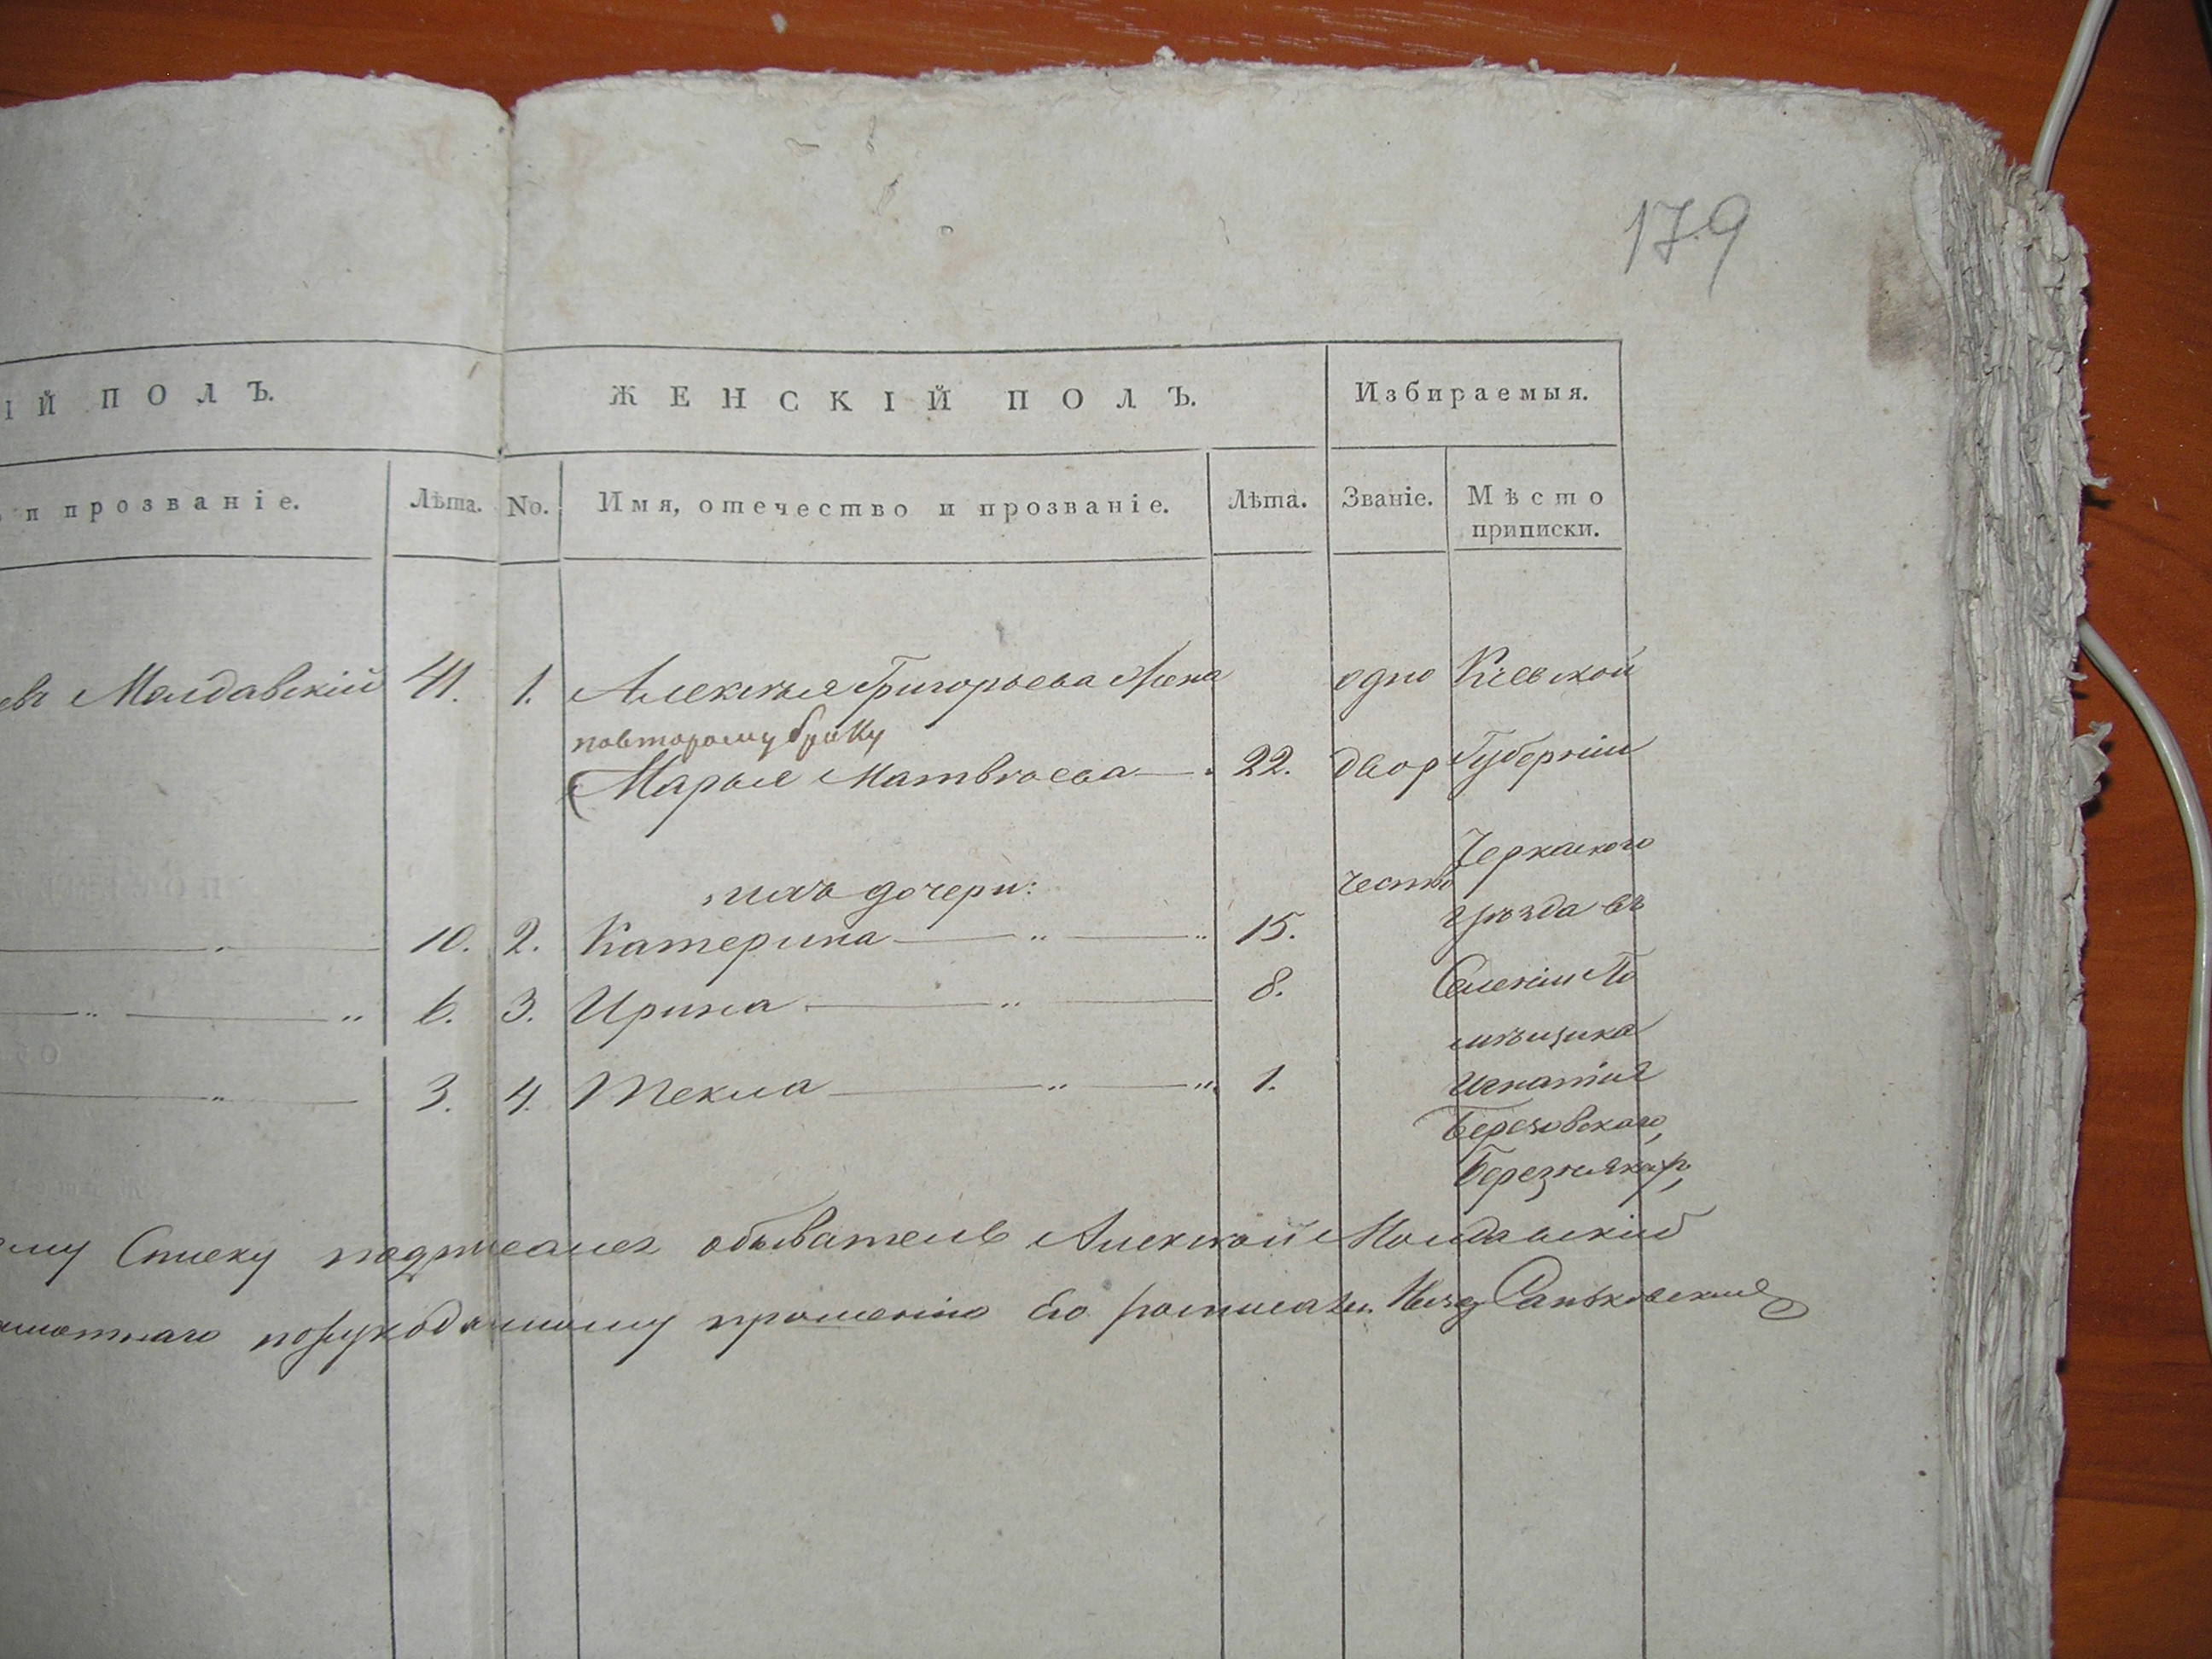 179
ІЙ ПОЛЪ.
ЖЕНСКІЙ ПОЛЪ.
Избираемыя.
и прозваніе.
Лѣта.
No.
Имя, отечество и прозваніе.
Лѣта.
Званіе.
Мѣсто
приписки.
евъ Молдавскій 41. 1. Алексѣя Григорьева Жена
повторому браку
Марья Матвѣева 22.
ихъ дочери:
10. 2. Катерина 15.
6. 3. Ирина 8.
3. 4. Текла 1.
одно
двор
чество
Кіевской
Губерніи
Черкаского
уѣзда въ
Селеніи По
мѣщика
Игнатія
Березовскаго,
Березнякахъ,
Списку подписался обыватель Алексѣй Молдавскій
прошенію Его росписался